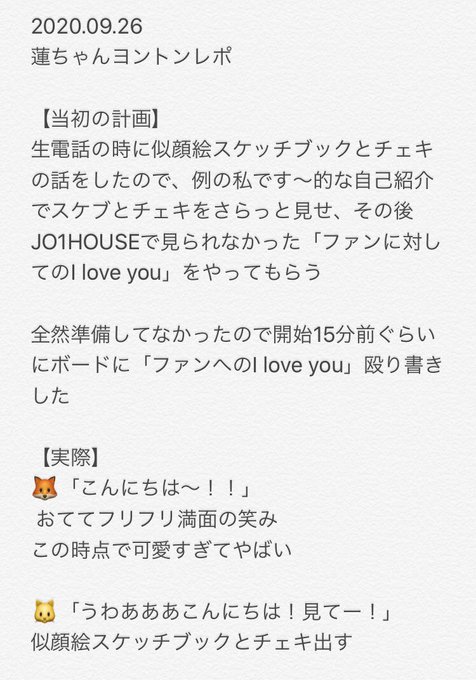 2020.09.26
蓮ちゃんヨントンレポ
【当初の計画】
生電話の時に似顔絵スケッチブックとチェキ
の話をしたので、例の私です〜的な自己紹介
でスケブとチェキをさらっと見せ、その後
JO1HOUSEで見られなかった「ファンに対し
てのI love you」をやってもらう
全然準備してなかったので開始15分前ぐらい
にボードに「ファンへのI love you」殴り書き
した
【実際】
🦊「こんにちは〜！！」
おててフリフリ満面の笑み
この時点で可愛すぎてやばい
🐱「うわあああこんにちは！見てー！」
似顔絵スケッチブックとチェキ出す